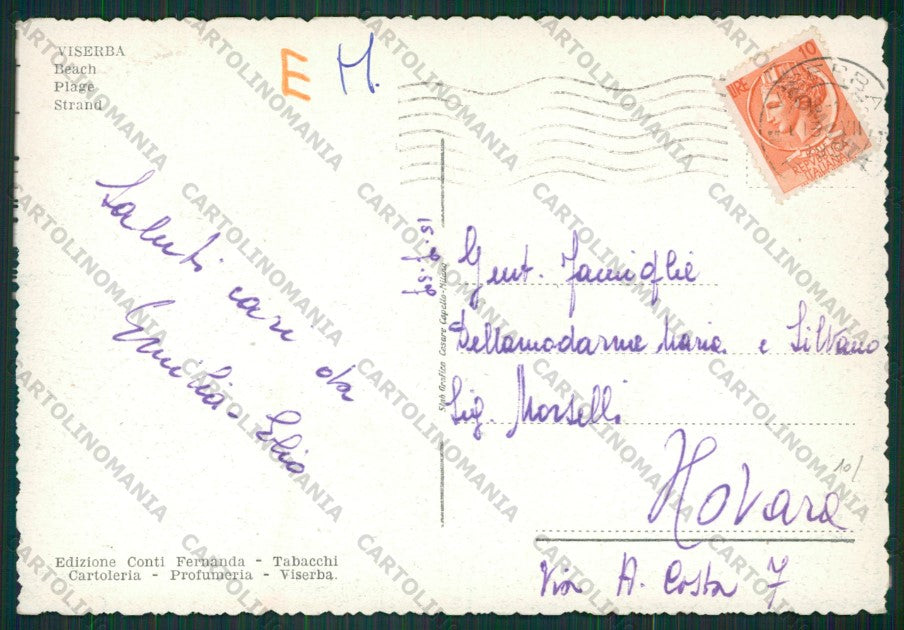 VISERBA
Beach
Plage
Strand
E M.
LIRE 10
ITALIANA
Saluti cari da
Emilia - Elio
Stab. Grafico Cesare Capello - Milano
Gent. Famiglie
Dellamodarme Maria e Silvano
Sig. Morselli
Novara
10/
Via A. Costa 7
Edizione Conti Fernanda - Tabacchi
Cartoleria - Profumeria - Viserba.
CARTOLINOMANIA